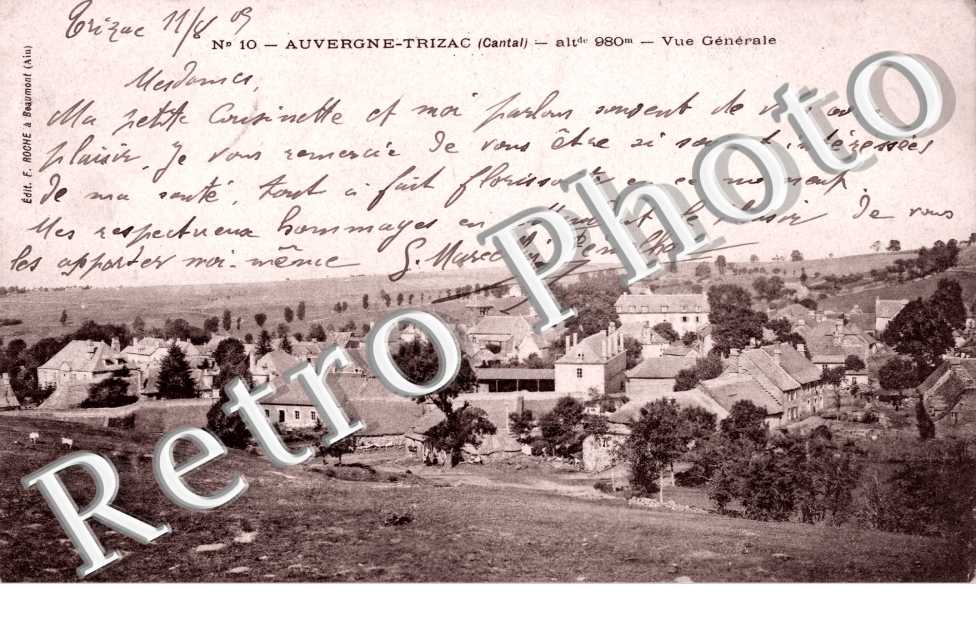 Trizac 11/8 09
Nº 10 – AUVERGNE-TRIZAC (Cantal) – altde 980m – Vue Générale
Édit. F. ROCHE à Beaumont (Ain)
Mesdames,
Ma petite Cousinette et moi parlons souvent de v
plaisir. Je vous remercie de vous être si intéressées
de ma santé, tout à fait florissante en ce moment
Mes respectueux hommages en le plaisir de vous
les apporter moi-même
G. Marc
Retro Photo